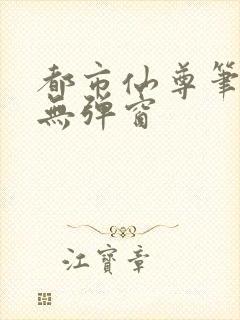 都市仙尊筆
無彈窗
江寶章